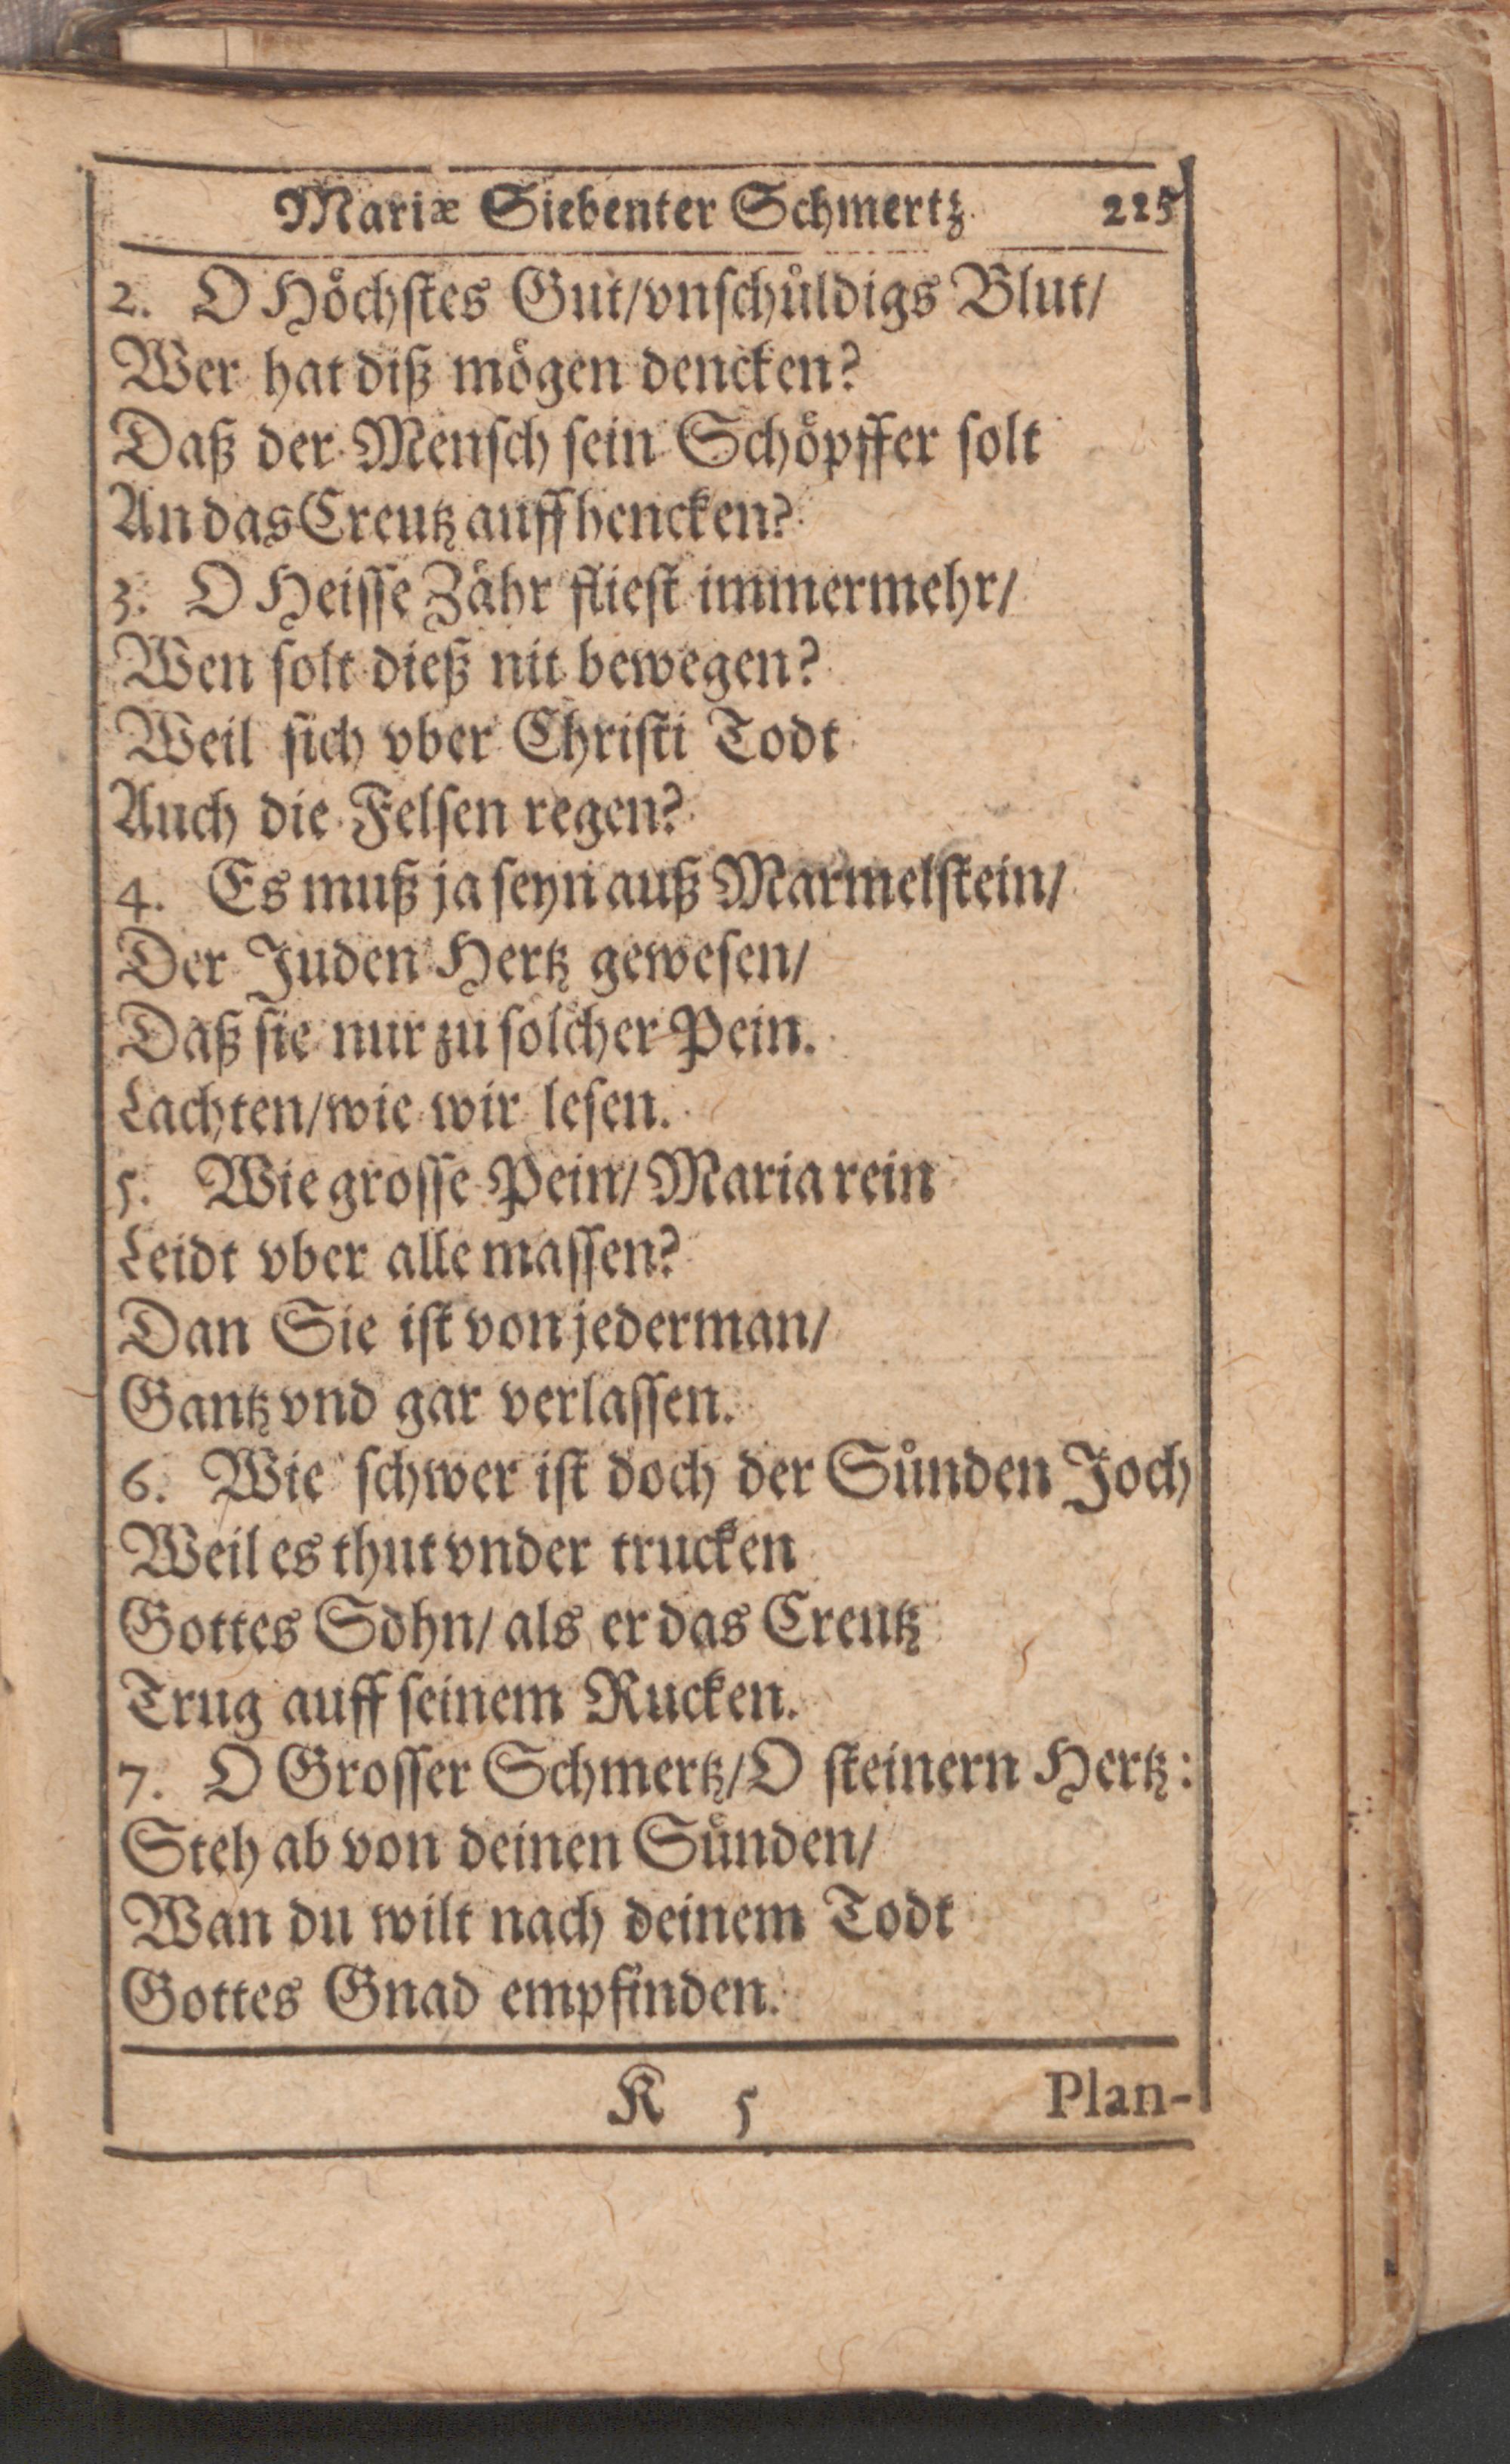 Mariæ Siebenter Schmertz. 225
2. O Höchstes Gut/vnschüldigs Blut/
Wer hat diß mögen dencken?
Daß der Mensch sein Schöpffer solt
An das Creutz auffhencken?
3. O Heisse Zähr fliest immermehr/
Wen solt dieß nit bewegen?
Weil sich vber Christi Todt
Auch die Felsen regen?
4. Es muß ja seyn auß Marmelstein/
Der Juden Hertz gewesen/
Daß sie nur zu solcher Pein.
Lachten/wie wir lesen.
5. Wie grosse Pein/Maria rein
Leidt vber alle massen?
Dan Sie ist von jederman/
Gantz vnd gar verlassen.
6. Wie schwer ist doch der Sünden Joch
Weil es thut vnder trucken
Gottes Sohn/als er das Creutz
Trug auff seinem Rucken.
7. O Grosser Schmertz/O steinern Hertz:
Steh ab von deinen Sünden/
Wan du wilt nach deinem Todt
Gottes Gnad empfinden.
K 5 Plan-